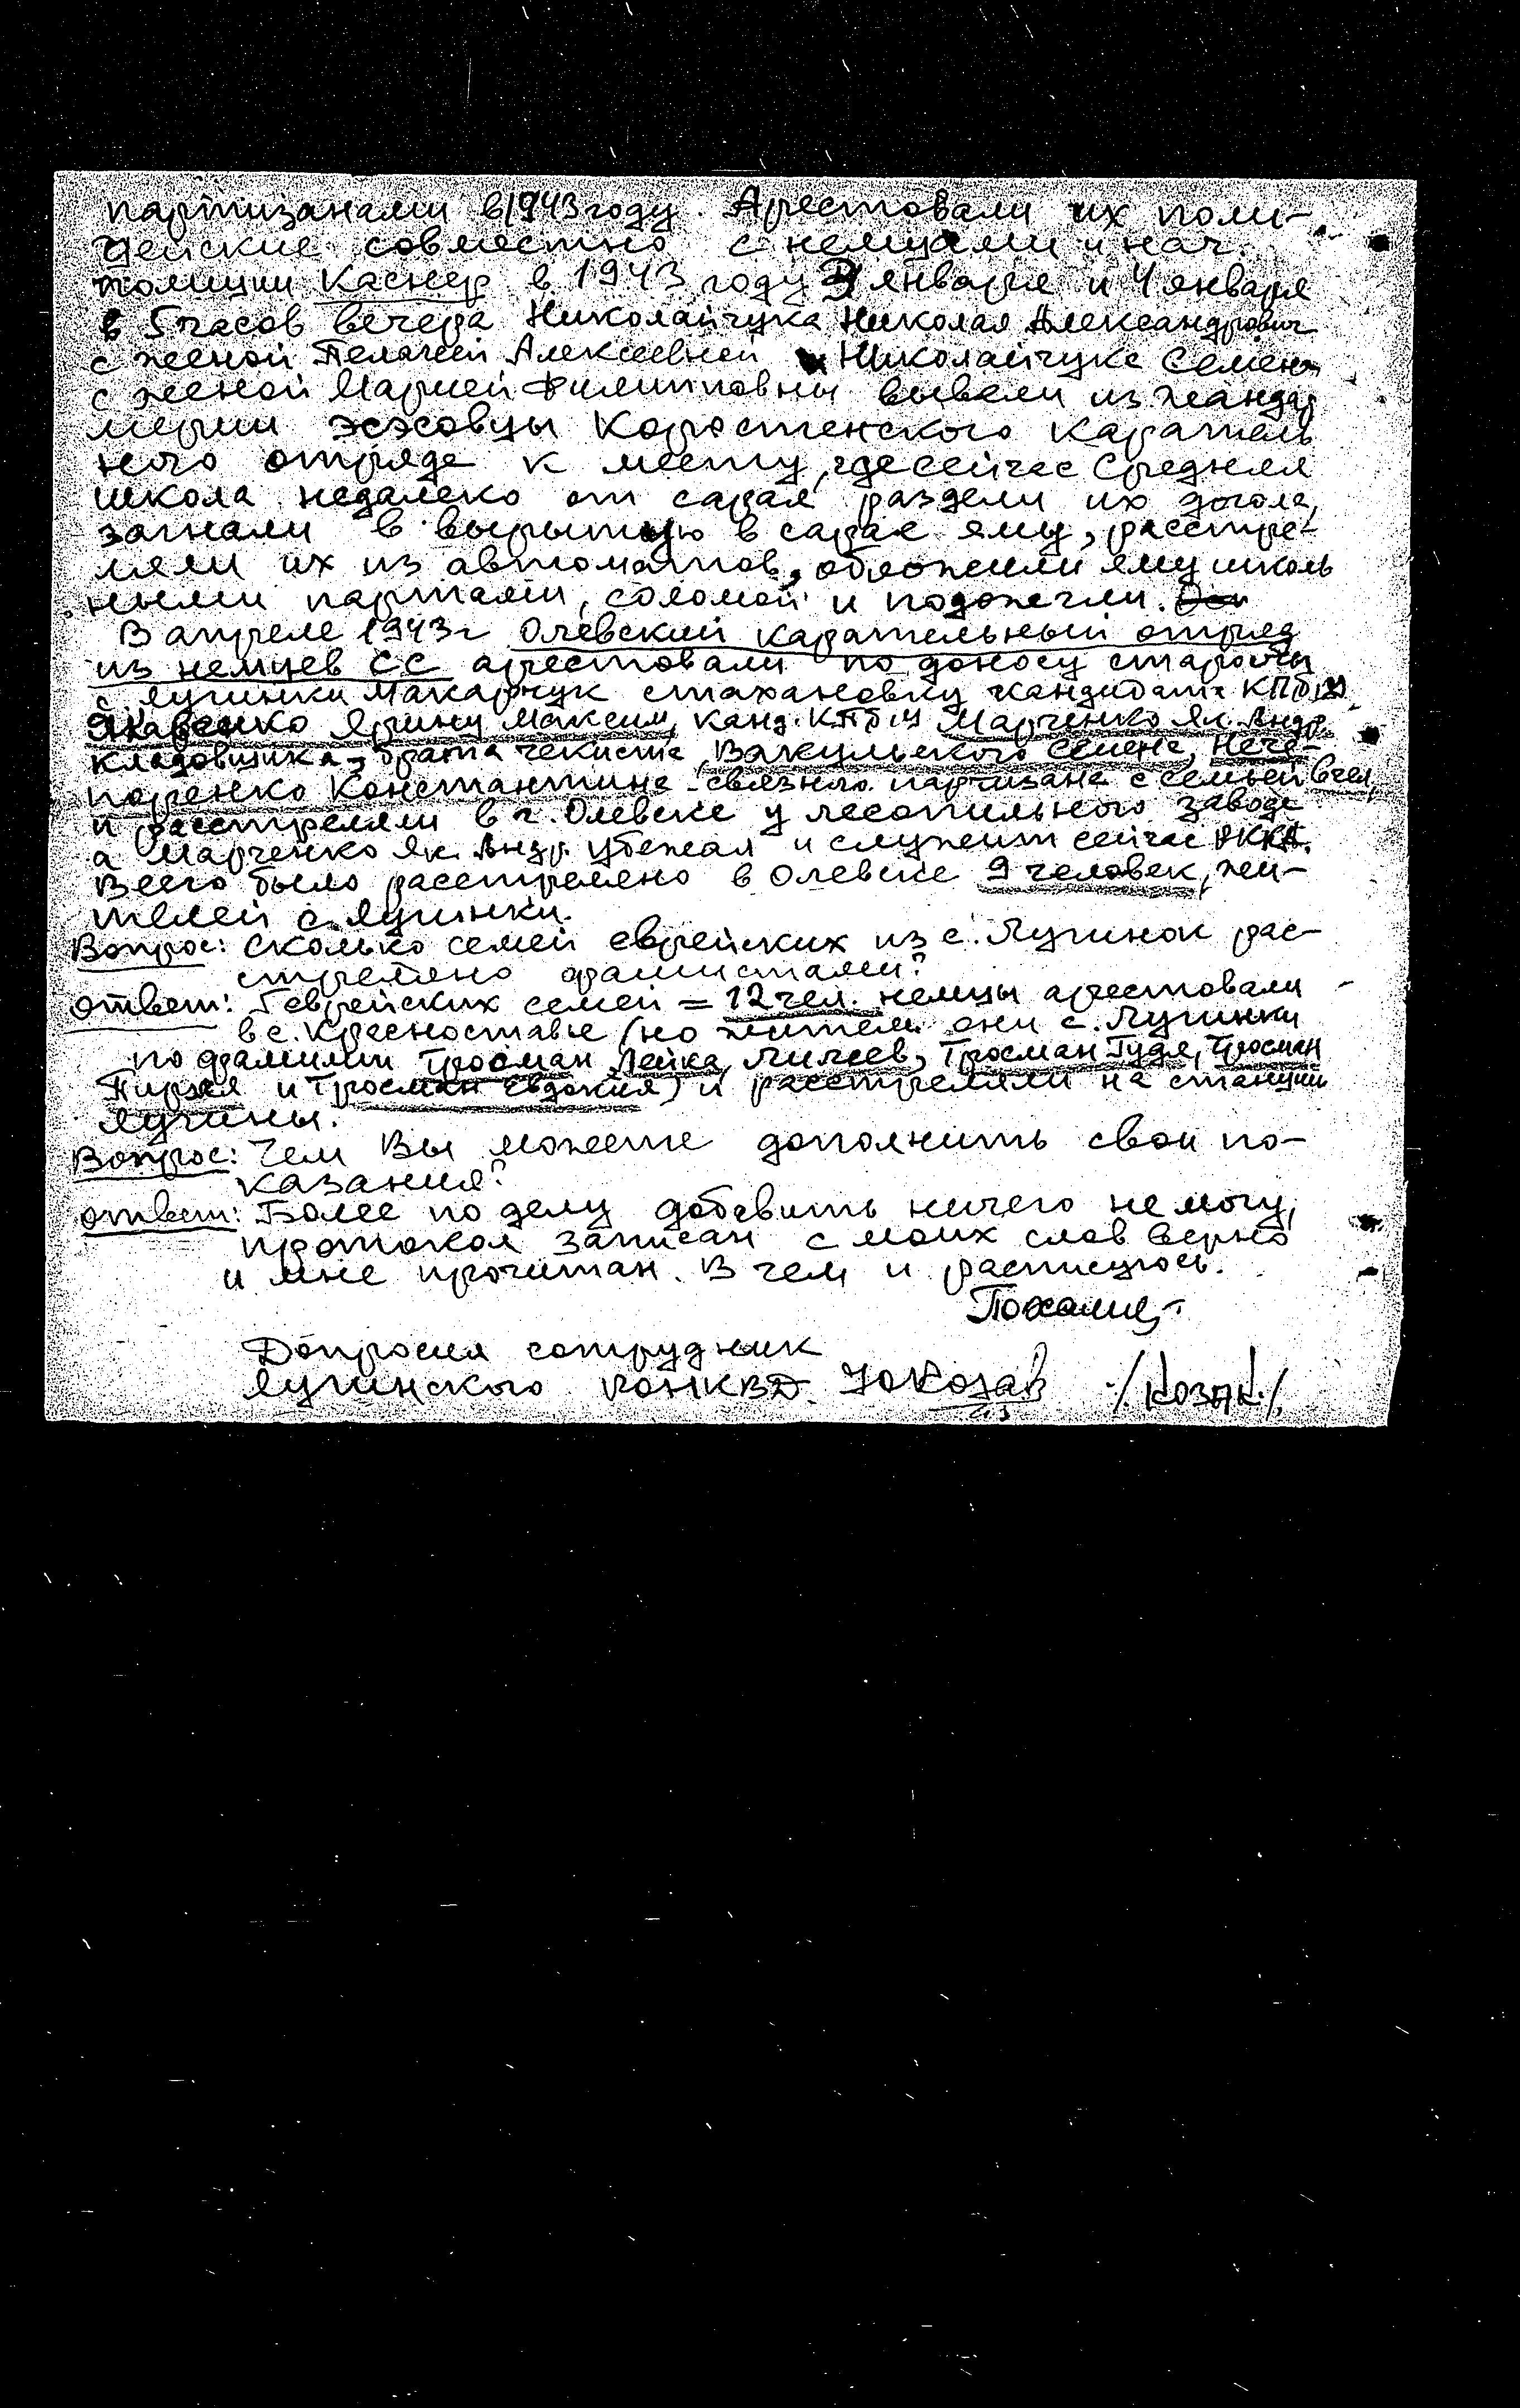 партизанами в 1943 году. Арестовали их поли-
цейские совместно с немцами и нач.
полиции Каснер в 1943 году января и 4 января
в 5 часов вечера Николайчука Николая Александрович
с женой Пелагеей Алексеевной и Николайчука Семена
с женой Марией Филипповны вывели из жандар
мерии эсэсовцы Коростенского Каратель
ного отряда к месту, где сейчас Средняя
школа недалеко от сарая раздели их догола,
загнали в вырытую в сарае яму, расстре-
ляли их из автоматов, обложили яму школь
ными партами, соломой и подожгли.
В апреле 1943 г Олевский карательный отряд
из немцев СС арестовали по доносу старосты
с Лугинки Макарчук стахановку кандидата КПб/У
Яковенко Ярину Максим, канд. КПб/У Марченко Як. Андр.
кладовщика, брата чекиста, Вакульского Семена, Нече-
поренко Константина - связного партизана с семьей 6 чел,
и расстреляли в г. Олевске у лесопильного завода
а Марченко Як. Андр. убежал и служит сейчас РККА.
Всего было расстреляно в Олевске 9 человек, жи-
телей с. Лугинки.
Вопрос: Сколько семей еврейских из с. Лугинок рас-
стреляно фашистами?
Ответ: еврейских семей = 12 чел. немцы арестовали
в с. Красноставье (но жители они с. Лугинки
по фамилии Тросман Лейка, Тросман Гудя, Тросман
и Тросман Евдокия) и расстреляли на станции
Лугины.
Вопрос: Чем Вы можете дополнить свои по-
казания?
Ответ: Более по делу добавить ничего не могу,
протокол записан с моих слов верно
и мне прочитан. В чем и распишусь.
Допросил сотрудник
Лугинского РОНКВД /Козак/